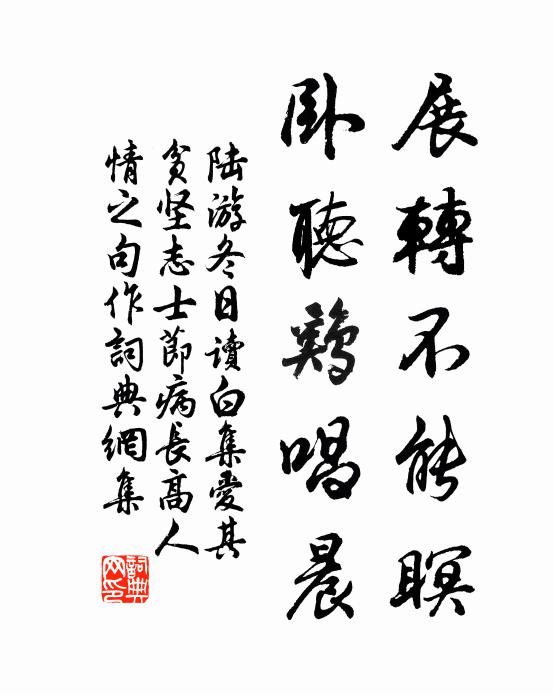 展轉不能瞑
卧聽鷄唱晨
陆游冬日讀白集愛其
貧坚志士節病長高人
情之句作詞典網集
詞典网印